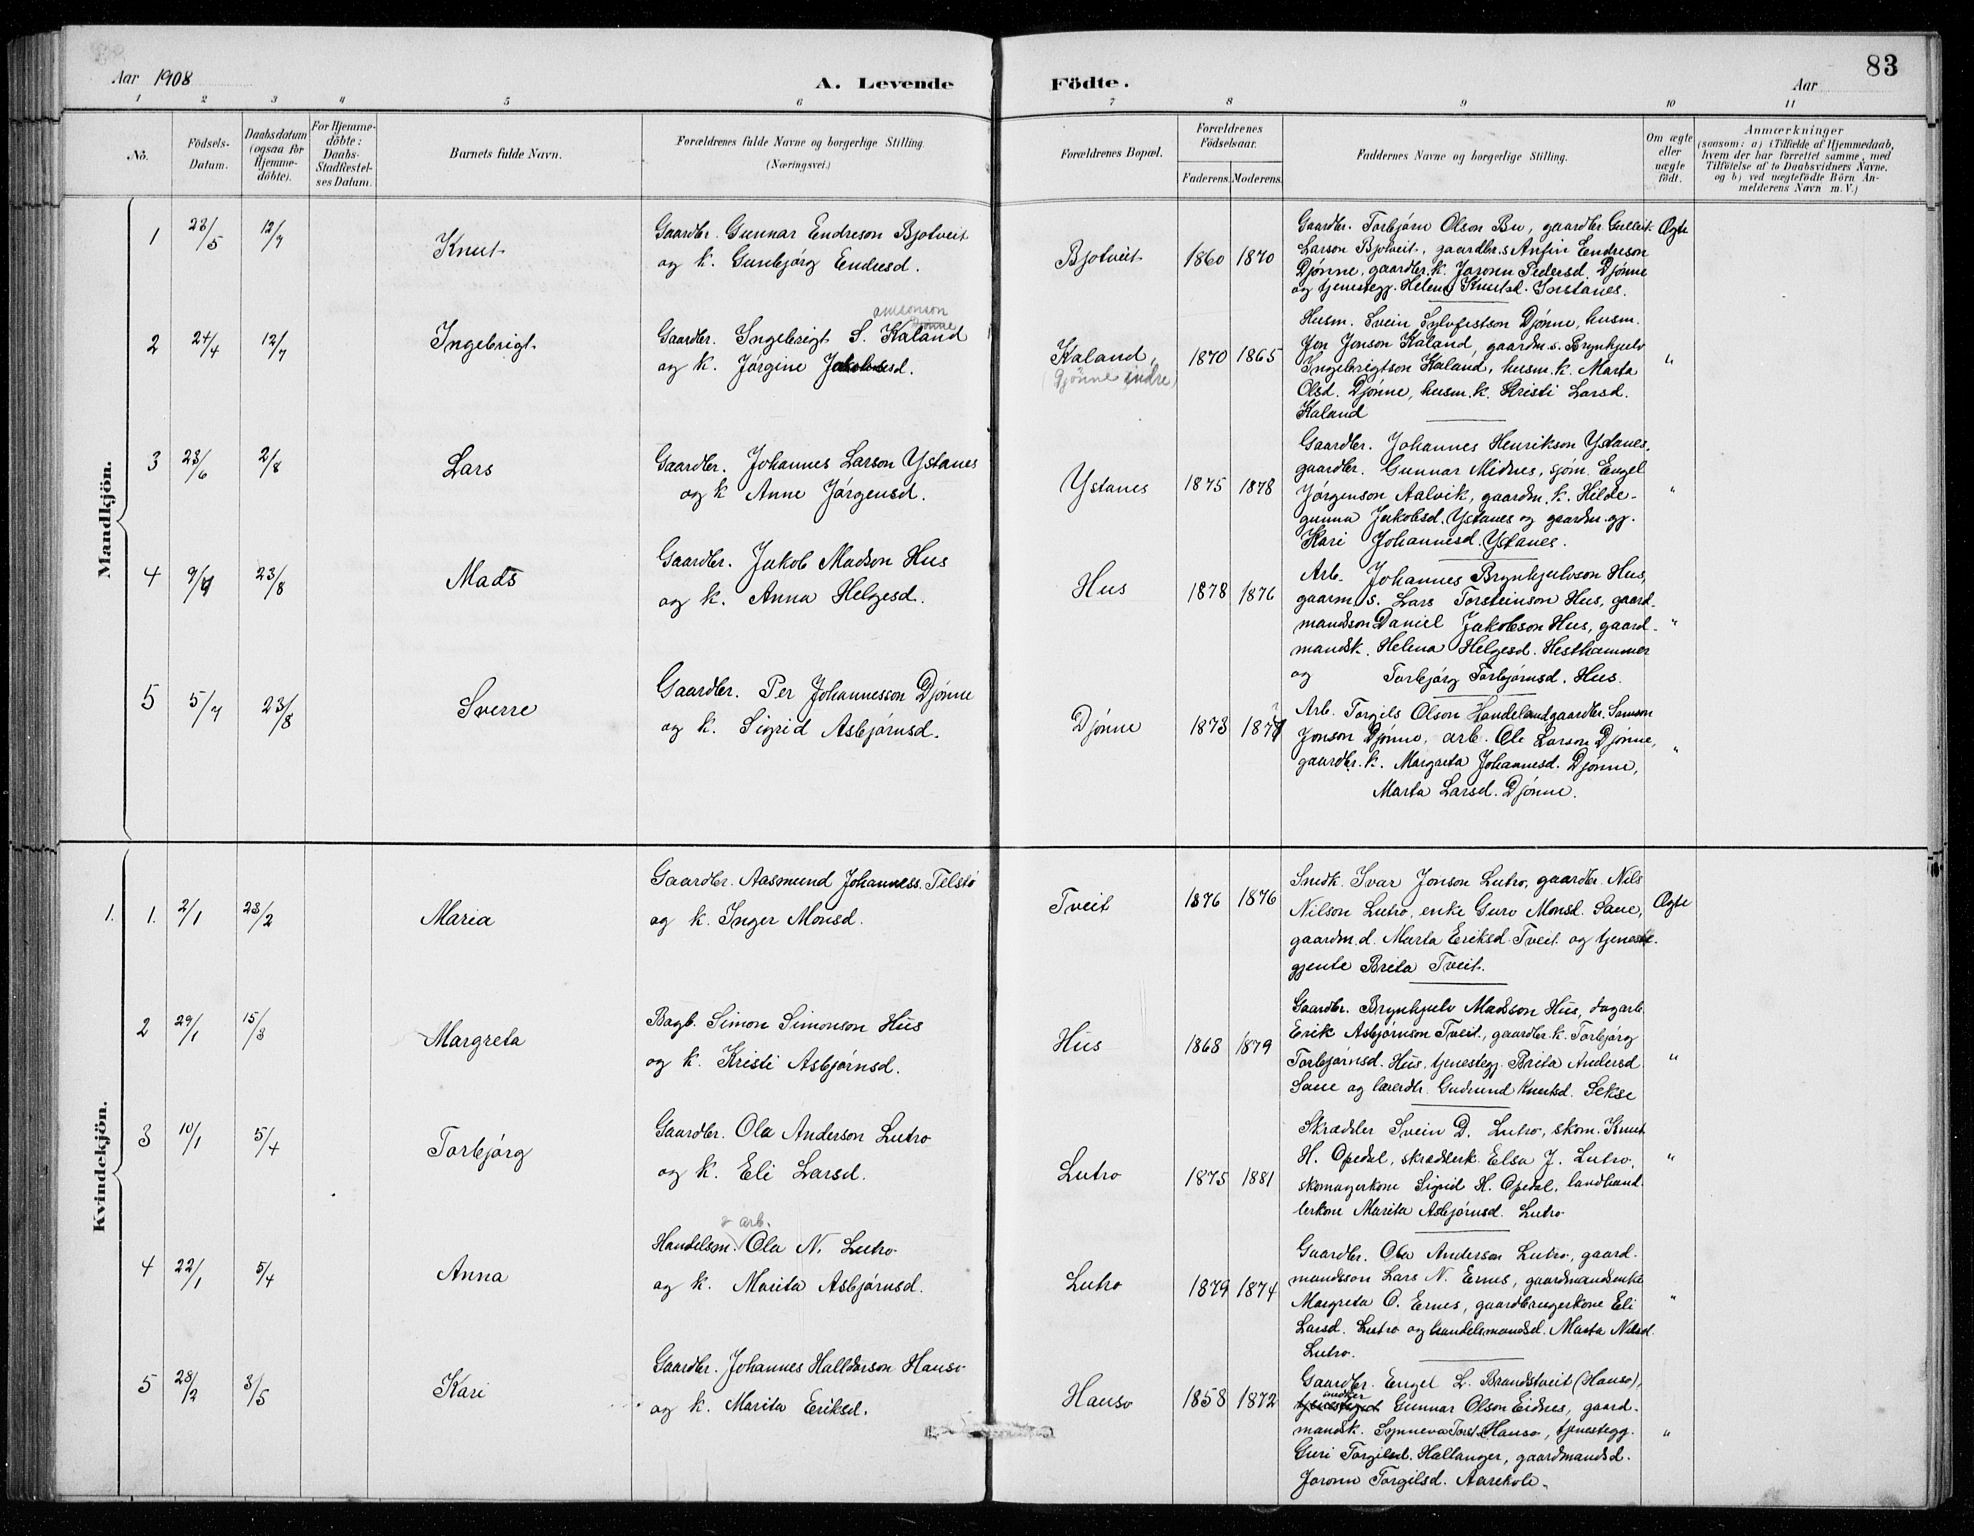 83
Aar 1908
A. Levende Födte.
Aar
1 2 3 4 5 6 7 8 9 10 11
No.
Födsels-
Datum.
Daabsdatum
(ogsaa for
Hjemme-
döbte).
For Hjemme-
döbte:
Daabs-
Stadfæstel-
ses Datum.
Barnets fulde Navn.
Forældrenes fulde Navne og borgerlige Stilling.
(Næringsvei.)
Forældrenes Bopæl.
Forældrenes
Födselsaar.
Faderens. Moderens.
Faddernes Navne og borgerlige Stilling.
Om ægte
eller
uægte
födt.
Anmærkninger
(saasom: a) i Tilfælde af Hjemmedaab,
hvem der har forrettet samme, med
Tilföielse af to Daabsvidners Navne.
og b) ved uægtefödte Börn An-
melderens Navn m. V.)
Mandkjön.
1 23/5 12/7 Knut
Gaardbr. Gunnar Endreson Bjotveit
og k. Gunbjørg Endresd.
Bjotveit 1860 1870
Gaardbr. Torbjørn Olson Bu, gaardbr. Gulleik
Larson Bjotveit, gaardbr.s Anfin Endreson
Djønne, gaardbr.k. Joronn Pedersd. Djønne
og tjenestegj. Helena Knutsd.
Ægte
2 24/4 12/7 Ingebrigt
Djønne
Gaardbr. Ingebrigt S. Kaland
og k. Jørgine
Kaland,
(Djønne indre)
1870 1865
Husm. Svein Sylvfestson Djønne, husm.
Jon Jonson Kaland, gaardm.s. Brynhjulv
Ingebrigtson Kaland, husm.k. Marta
Olsd. Djønne, husm.k. Kristi Larsd.
Kaland
"
3 23/6 2/8 Lars
Gaardbr. Johannes Larson Ystanes
og k Anne Jørgensd.
Ystanes 1875 1878
Gaardbr. Johannes Henrikson Ystanes,
gaardbr. Gunnar Midnes, sjøm. Engel
Jørgenson Aalvik, gaardm.k. Hilde-
gunna Jakobsd. Ystanes og gaardm.gj.
Kari Johannesd. Ystanes.
"
4 9/7 23/8 Mads
Gaardbr. Jakob Madson Hus
og k. Anna Helgesd.
Hus 1878 1876
Arb. Johannes Brynhjulvson Hus,
gaarm.s. Lars Torsteinson Hus, gaard-
mandsson Daniel Jakobson Hus, gaard-
mandsk. Helena Helgesd. Hesthammer
og Torbjørg Torbjørnsd. Hus.
"
5 5/7 23/8 Sverre
Gaardbr. Per Johannesson Djønne
og k. Sigrid Asbjørnsd.
Djønne 1873
Arb. Torgils Olson Handeland gaardbr. Samson
Jonson Djønne, arb. Ole Larson Djønne,
gaardbr.k. Margreta Johannesd. Djønne,
Marta Larsd. Djønne.
"
Kvindekjön.
1. 1. 2/1 23/2 Maria
Gaardbr. Aasmund Johanness. Telstø
og k. Inger Monsd.
Tveit 1876 1876
Snedk. Ivar Jonson Lutro, gaardbr. Nils
Nilson Lutro, enke Guro Monsd. Saue,
gaardm.d. Marta Eriksd. Tveit og tjeneste-
gjente Brita Tveit.
Ægte
2 29/1 15/3 Margreta
Bagb. Simon Simonson Hus
og k. Kristi Asbjørnsd.
Hus 1868 1879
Gaardbr. Brynhjulv Madsson Hus, dagarb.
Erik Asbjørnson Tveit, gaardbr.k. Torbjørg
Torbjørnsd. Hus, tjenestegj. Brita Andersd
Saue og lærerdtr. Gudrund Knutsd. Sekse
"
3 10/1 5/4 Torbjørg
Gaardbr. Ola Anderson Lutro
og k. Eli Larsd.
Lutro 1875 1881
Skrædder Svein D. Lutro, skom. Knut
H. Opedal, skrædderk. Elsa J. Lutro,
skomagerkone Sigrid H. Opedal, landhand-
lerkone Marita Asbjørnsd. Lutro
"
4 22/1 5/4 Anna
arb.
Handelsm. Ola N. Lutro
og k. Marita Asbjørnsd.
Lutro 1879 1874
Gaardbr. Ola Anderson Lutro, gaard-
mandsson Lars N. Ernes, gaardmandsenke
Margreta O. Ernes, gaardbrugerkone Eli
Larsd. Lutro og handelsmandsd. Marta Nilsd.
Lutro.
"
5 28/2 3/5 Kari
Gaardbr. Johannes Halldorson Hauso
og k. Marita Eriksd.
Hauso 1858 1872
Gaardbr. Engel L. Brandstveit (Hauso),
Gunnar Olson Eidnes, gaard-
mandsk. Synneva Hauso, tjenestegj.
Guri Torgilsd. Hallanger, gaardmandsd.
Joronn Torgilsd. Aarekole.
"